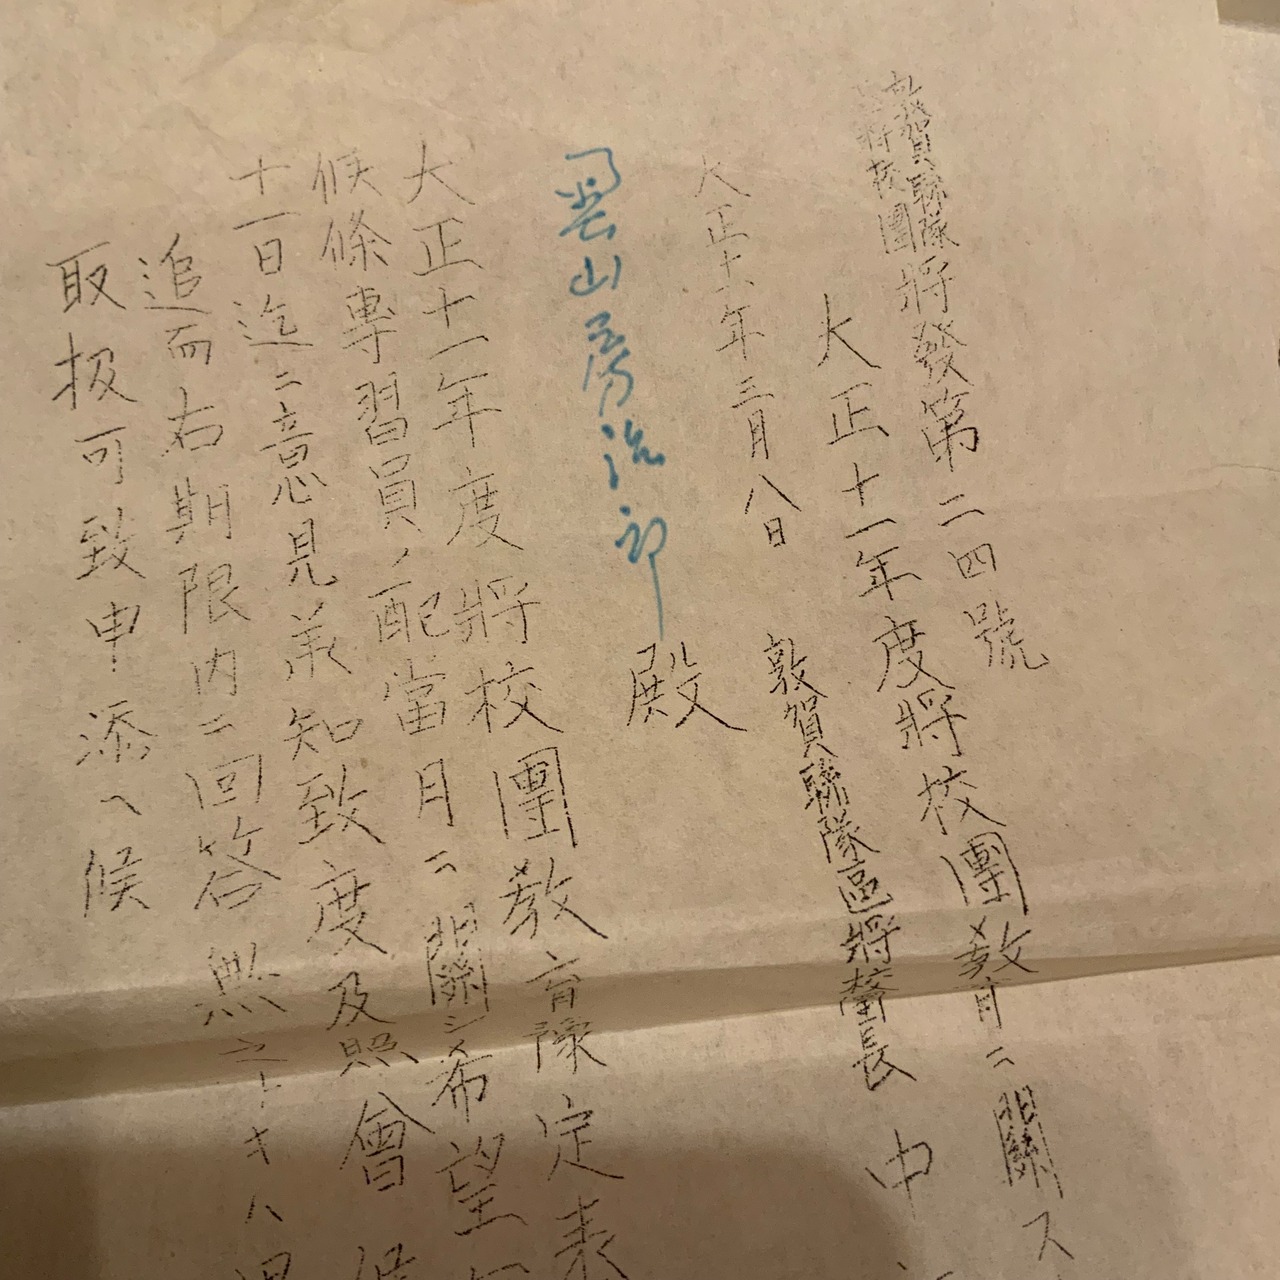 敦賀聯隊
將校團將發第二四號
大正十一年度將校團教育ニ關ス
大正十一年三月八日
敦賀聯隊區將校團長 中
山房治郎殿
大正十一年度將校團教育豫定表
候條專習員ノ配當月ニ關シ希望
十一日迄ニ意見承知致度及照會候
追而右期限内ニ回答無之トキハ
取扱可致申添へ候